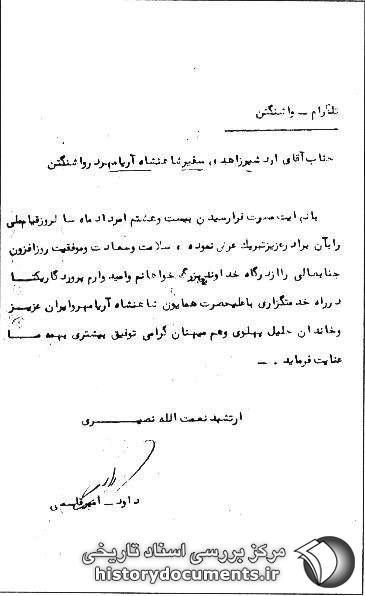 تلگرام - واشنگتن
جناب آقای اردشیر زاهدی سفیر شاهنشاه آریامهر در واشنگتن
با نهایت مسرت فرارسیدن بیست و هشتم امرداد ماه سالروز قیام ملی
را بآن برادر عزیز تبریک عرض نموده ، سلامت و سعادت و موفقیت روزافزون
جنابعالی را از درگاه خداوند بزرگ خواهانم و امید وارم پروردگار یکتا
در راه خدمتگزاری باعلیحضرت همایون شاهنشاه آریامهر و ایران عزیز
و خاندان جلیل پهلوی و هم میهنان گرامی توفیق بیشتری بهمه ما
عنایت فرماید . -
ارتشبد نعمت الله نصیری
داود -
مرکز بررسی اسناد تاریخی
historydocuments.ir